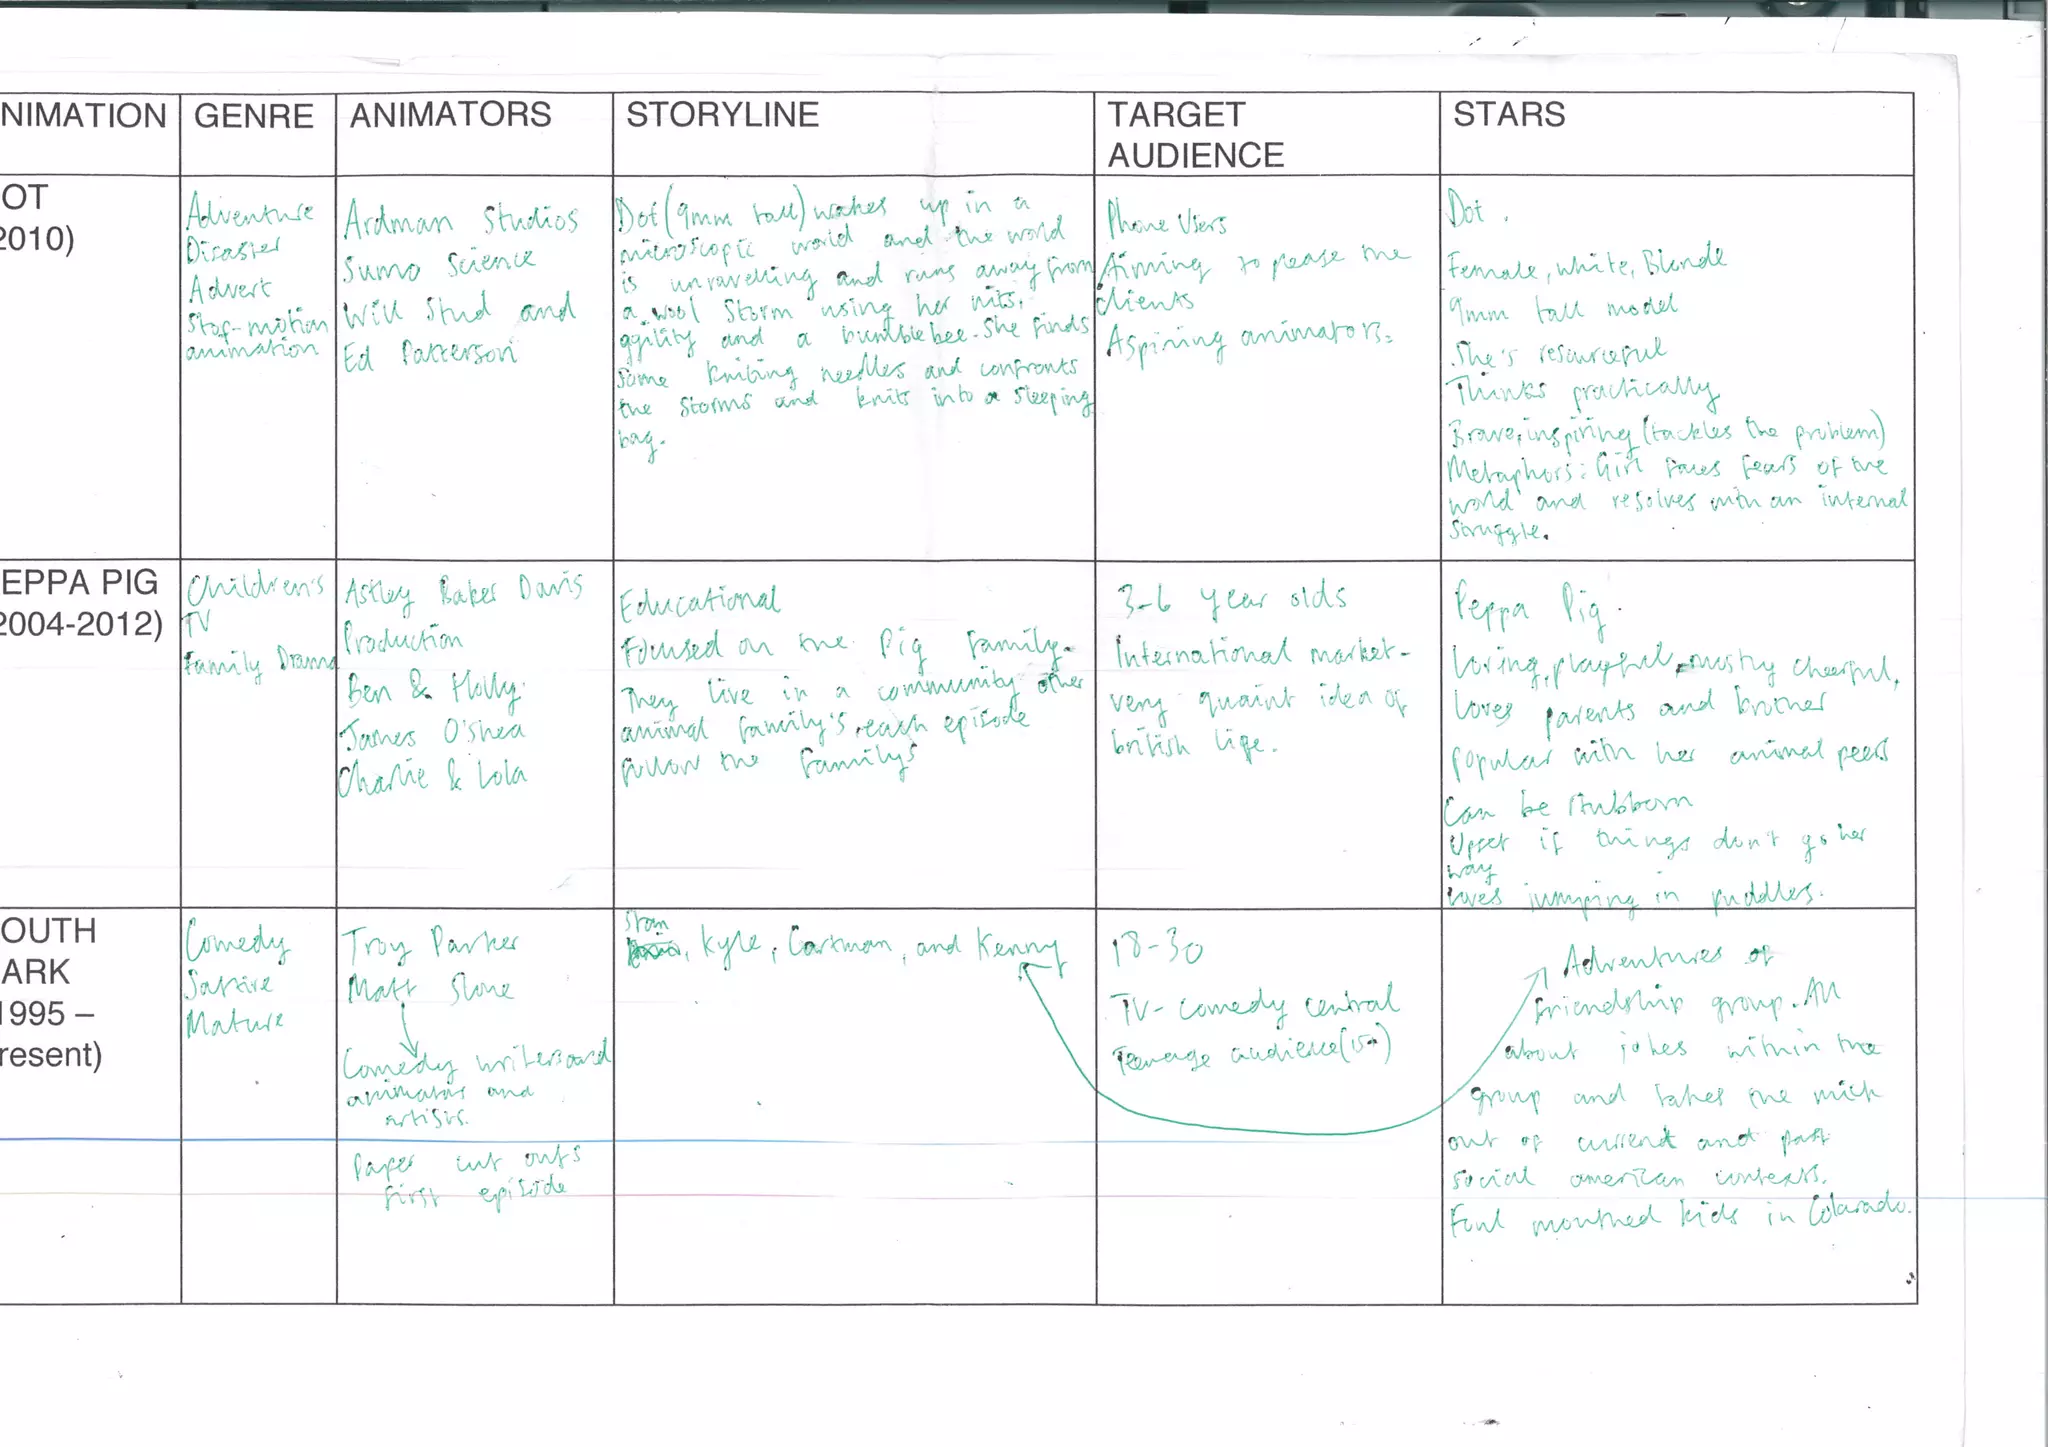 NIMATION
GENRE
ANIMATORS
STORYLINE
TARGET
AUDIENCE
STARS
OT
2010)
Adventure
Disaster
Advert
Stop-motion
animation
Ardman Studios
Sumo Science
Will Stud and
Ed Patterson
Dot (9mm tall) wakes up in a
microscopic world and the world
is unravelling and runs away from
a wool storm using her wits,
agility and a bumblebee. She finds
some knitting needles and confronts
the storms and knits into a sleeping
bag.
Phone Users
Aiming to please the
clients
Aspiring animators.
Dot.
Female, white, Blonde
9mm tall model
She's resourceful
Thinks practically
Brave, inspiring (tackles the problem)
Metaphors: Girl faces fears of the
world and resolves with an internal
struggle.
EPPA PIG
2004-2012)
Children's
TV
Family Drama
Astley Baker Davis
Production
Ben & Holly
James O'Shea
Charlie & Lola
Educational
Focused on the Pig family.
They live in a community other
animal family's, each episode
follow the family's
3-6 year olds
International market -
very quaint idea of
british life.
Peppa Pig.
Loving, playful, mostly cheerful,
loves parents and brother
popular with her animal peers
Can be stubborn
Upset if things don't go her
way
loves jumping in puddles.
OUTH
ARK
1995 –
resent)
Comedy
Satire
Mature
Troy Parker
Matt Stone
Comedy writers and
animators and
artists.
Paper cut outs
first episode
Stan
, Kyle, Cartman, and Kenny
18-30
TV- comedy central
Teenage audience (15+)
Adventures of
friendship group. All
about jokes within the
group and takes the mick
out of current and past
social american contexts.
Foul mouthed kids in Colarado.